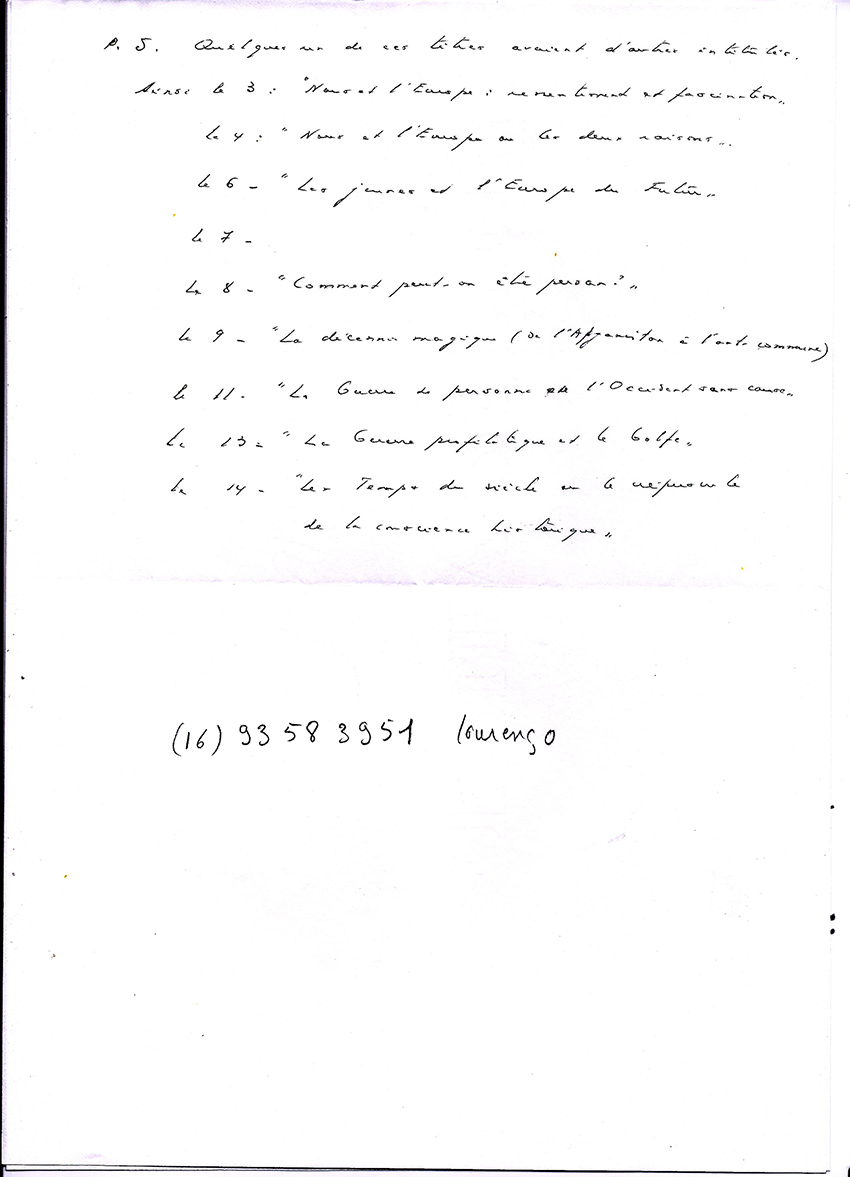 P. S. Quelques un de ces titres avaient d'autres intitulés.
Ainsi le 3 : "Nous et l'Europe : ressentiment et fascination"
le 4 : "Nous et l'Europe ou les deux raisons"
le 6 - "Les jeunes et l'Europe du Futur"
le 7 -
Le 8 - "Comment peut-on être persan?"
le 9 - "La décennie magique (de l'Afganistan à l'auto commune)
le 11 - "La Guerre de personne l'Occident sans cause"
Le 13 - " La Guerre et le Golfe"
Le 14 - "Les Temps du siècle ou le crépuscule
de la conscience historique"
(16) 93 58 3951 lourenço